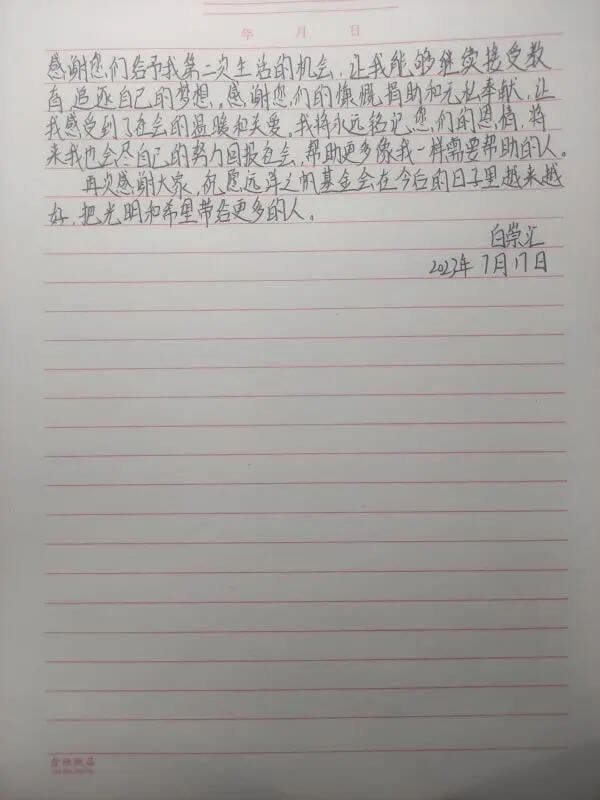 年 月 日
感谢您们给予我第二次生活的机会，让我能够继续接受教
育，追逐自己的梦想。感谢您们的慷慨捐助和无私奉献，让
我感受到了社会的温暖和关爱。我将永远铭记您们的恩情，将
来我也会尽自己的努力回报社会，帮助更多像我一样需要帮助的人。
再次感谢大家，祝愿远洋之帆基金会在今后的日子里越来越
好，把光明和希望带给更多的人。
白崇汇
2023年7月17日